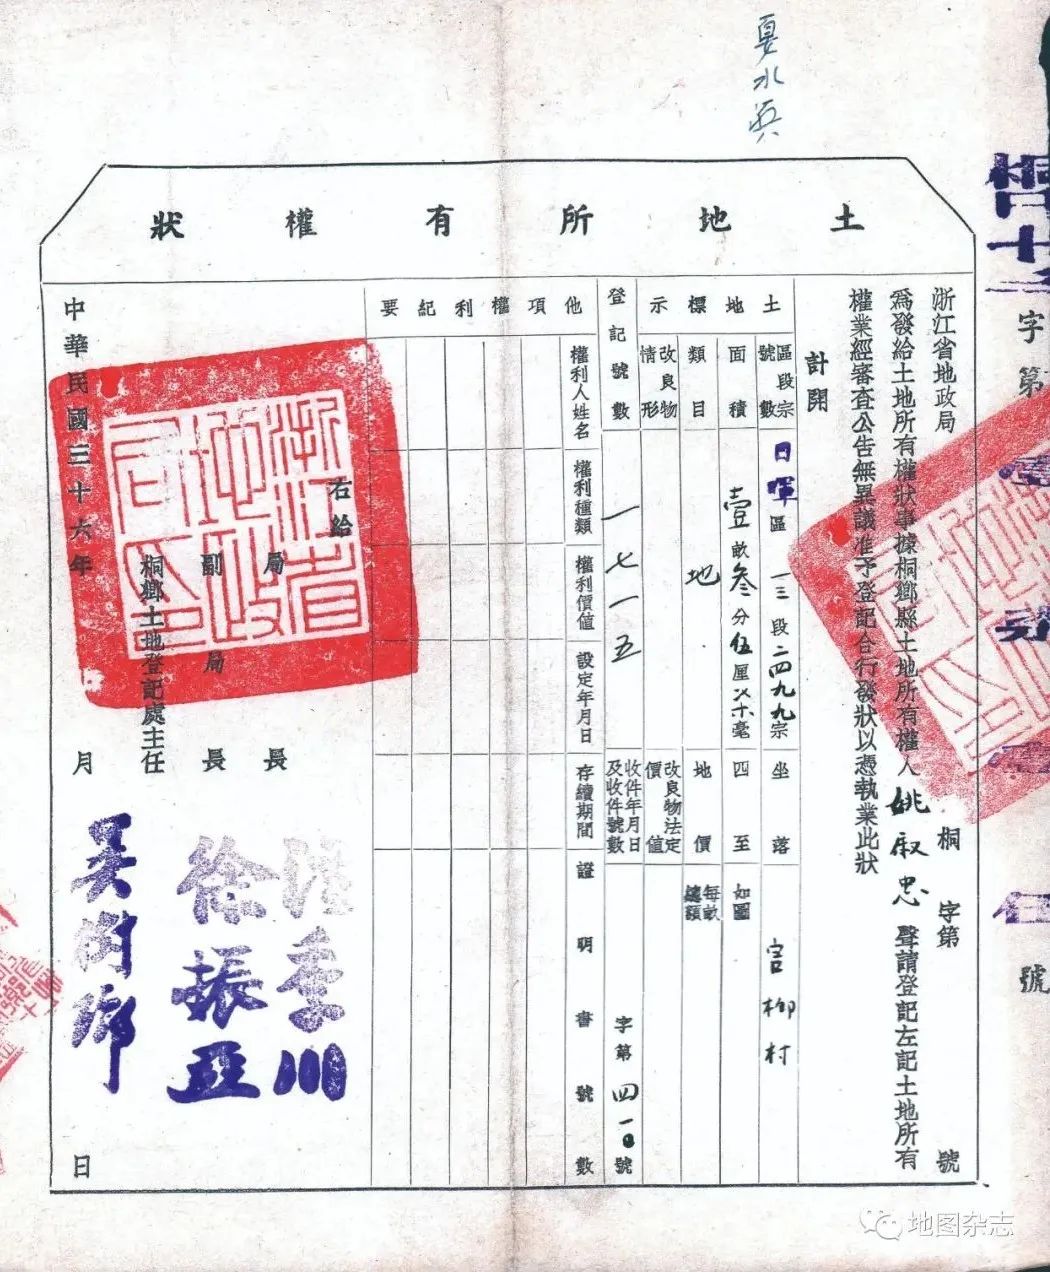 土地所有權狀
浙江省地政局
桐字第　號
為發給土地所有權狀事據桐鄉縣土地所有權人姚淑忠聲請登記左記土地所有
權業經審查公告無異議准予登記合行發狀以憑執業此狀
計開
土地標示
區段宗號數
日暉區一三段二四九九宗
坐落
宮柳村
面積
壹畝叁分伍厘
毫
四至
如圖
類目
地
地價
每畝
總額
改良物情形
改良物法定價值
登記號數
一七一五
收件年月日及收件號數
字第四一〇號
他項權利紀要
權利人姓名
權利種類
權利價值
設定年月日
存續期間
證明書號數
右給
局長
季川
副局長
徐振亞
桐鄉土地登記處主任
吳樹鄉
中華民國三十六年　月　日
浙江省地政局印
字第
號
地图杂志